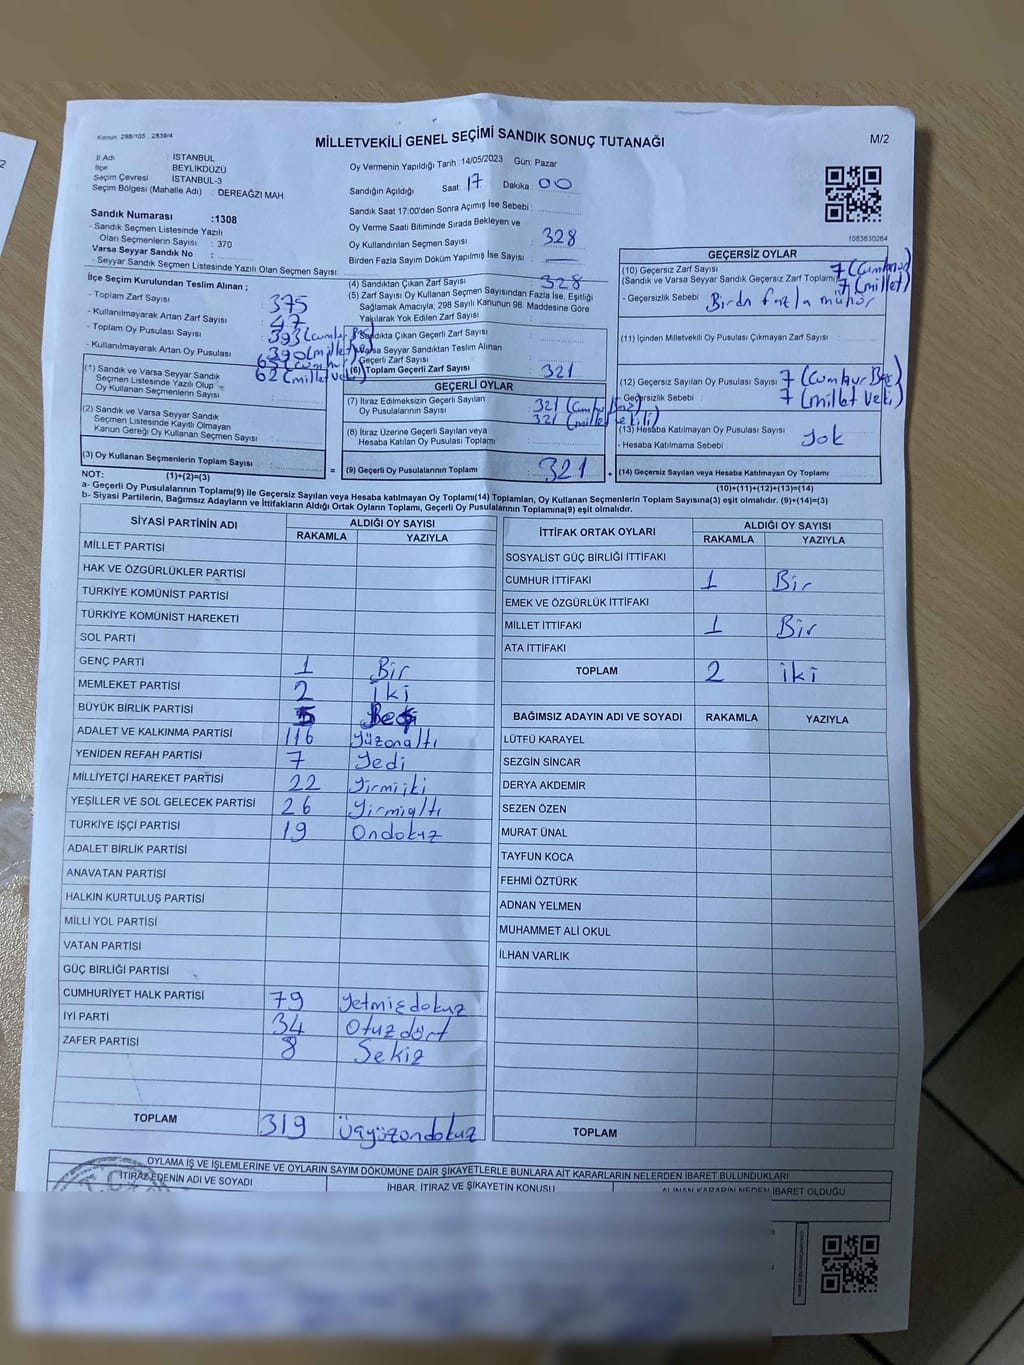 Kanun. 298/105 , 2839/4
MİLLETVEKİLİ GENEL SEÇİMİ SANDIK SONUÇ TUTANAĞI
M/2
İl Adı : İSTANBUL
İlçe : BEYLİKDÜZÜ
Seçim Çevresi : İSTANBUL-3
Seçim Bölgesi (Mahalle Adı) : DEREAĞZI MAH.
Oy Vermenin Yapıldığı Tarih : 14/05/2023 Gün: Pazar
Sandığın Açıldığı Saat : 17 Dakika : 00
Sandık Saat 17:00'den Sonra Açımış İse Sebebi :
Sandık Numarası :1308
- Sandık Seçmen Listesinde Yazılı
Olan Seçmenlerin Sayısı : 370
Varsa Seyyar Sandık No :
- Seyyar Sandık Seçmen Listesinde Yazılı Olan Seçmen Sayısı:
Oy Verme Saati Bitiminde Sırada Bekleyen ve
Oy Kullandırılan Seçmen Sayısı : 328
Birden Fazla Sayım Döküm Yapılmış İse Sayısı :
1083630264
İlçe Seçim Kurulundan Teslim Alınan ;
- Toplam Zarf Sayısı : 375
- Kullanılmayarak Artan Zarf Sayısı : 47
- Toplam Oy Pusulası Sayısı : 393
390
- Kullanılmayarak Artan Oy Pusulası
62
(1) Sandık ve Varsa Seyyar Sandık
Seçmen Listesinde Yazılı Olup
Oy Kullanan Seçmenlerin Sayısı :
(2) Sandık ve Varsa Seyyar Sandık
Seçmen Listesinde Kayıtlı Olmayan
Kanun Gereği Oy Kullanan Seçmen Sayısı :
(3) Oy Kullanan Seçmenlerin Toplam Sayısı :
(4) Sandıktan Çıkan Zarf Sayısı : 328
(5) Zarf Sayısı Oy Kullanan Seçmen Sayısından Fazla İse, Eşitliği
Sağlamak Amacıyla; 298 Sayılı Kanunun 98. Maddesine Göre
Yakılarak Yok Edilen Zarf Sayısı :
Sandıkta Çıkan Geçerli Zarf Sayısı :
Varsa Seyyar Sandıktan Teslim Alınan
Geçerli Zarf Sayısı :
(6) Toplam Geçerli Zarf Sayısı : 321
GEÇERLİ OYLAR
(7) İtiraz Edilmeksizin Geçerli Sayılan
Oy Pusulalarının Sayısı : 321
321
(8) İtiraz Üzerine Geçerli Sayılan veya
Hesaba Katılan Oy Pusulası Toplamı :
= (9) Geçerli Oy Pusulalarının Toplamı : 321
GEÇERSİZ OYLAR
(10) Geçersiz Zarf Sayısı : 7
(Sandık ve Varsa Seyyar Sandık Geçersiz Zarf Toplamı) 7 (millet)
- Geçersizlik Sebebi : Birdn fazla mühür
(11) İçinden Milletvekili Oy Pusulası Çıkmayan Zarf Sayısı :
(12) Geçersiz Sayılan Oy Pusulası Sayısı : 7
- Geçersizlik Sebebi : 7
(13) Hesaba Katılmayan Oy Pusulası Sayısı : Yok
- Hesaba Katılmama Sebebi :
(14) Geçersiz Sayılan veya Hesaba Katılmayan Oy Toplamı
NOT: (1)+(2)=(3)
(10)+(11)+(12)+(13)=(14)
a- Geçerli Oy Pusulalarının Toplamı(9) ile Geçersiz Sayılan veya Hesaba katılmayan Oy Toplamı(14) Toplamları, Oy Kullanan Seçmenlerin Toplam Sayısına(3) eşit olmalıdır. (9)+(14)=(3)
b- Siyasi Partilerin, Bağımsız Adayların ve İttifakların Aldığı Ortak Oyların Toplamı, Geçerli Oy Pusulalarının Toplamına(9) eşit olmalıdır.
SİYASİ PARTİNİN ADI ALDIĞI OY SAYISI
RAKAMLA YAZIYLA
MİLLET PARTİSİ
HAK VE ÖZGÜRLÜKLER PARTİSİ
TÜRKİYE KOMÜNİST PARTİSİ
TÜRKİYE KOMÜNİST HAREKETİ
SOL PARTİ
GENÇ PARTİ 1 Bir
MEMLEKET PARTİSİ 2 İki
BÜYÜK BİRLİK PARTİSİ 5 Beş
ADALET VE KALKINMA PARTİSİ 116 Yüzonaltı
YENİDEN REFAH PARTİSİ 7 Yedi
MİLLİYETÇİ HAREKET PARTİSİ 22 Yirmiiki
YEŞİLLER VE SOL GELECEK PARTİSİ 26 Yirmialtı
TÜRKİYE İŞÇİ PARTİSİ 19 Ondokuz
ADALET BİRLİK PARTİSİ
ANAVATAN PARTİSİ
HALKIN KURTULUŞ PARTİSİ
MİLLİ YOL PARTİSİ
VATAN PARTİSİ
GÜÇ BİRLİĞİ PARTİSİ
CUMHURİYET HALK PARTİSİ 79 Yetmişdokuz
İYİ PARTİ 34 Otuzdört
ZAFER PARTİSİ 8 Sekiz
TOPLAM 319 Üçyüzondokuz
İTTİFAK ORTAK OYLARI ALDIĞI OY SAYISI
RAKAMLA YAZIYLA
SOSYALİST GÜÇ BİRLİĞİ İTTİFAKI
CUMHUR İTTİFAKI 1 Bir
EMEK VE ÖZGÜRLÜK İTTİFAKI
MİLLET İTTİFAKI 1 Bir
ATA İTTİFAKI
TOPLAM 2 İki
BAĞIMSIZ ADAYIN ADI VE SOYADI RAKAMLA YAZIYLA
LÜTFÜ KARAYEL
SEZGİN SİNCAR
DERYA AKDEMİR
SEZEN ÖZEN
MURAT ÜNAL
TAYFUN KOCA
FEHMİ ÖZTÜRK
ADNAN YELMEN
MUHAMMET ALİ OKUL
İLHAN VARLIK
TOPLAM
OYLAMA İŞ VE İŞLEMLERİNE VE OYLARIN SAYIM DÖKÜMÜNE DAİR ŞİKAYETLERLE BUNLARA AİT KARARLARIN NELERDEN İBARET BULUNDUKLARI
İTİRAZ EDENİN ADI VE SOYADI İHBAR, İTİRAZ VE ŞİKAYETİN KONUSU ALINAN KARARIN NEDEN İBARET OLDUĞU